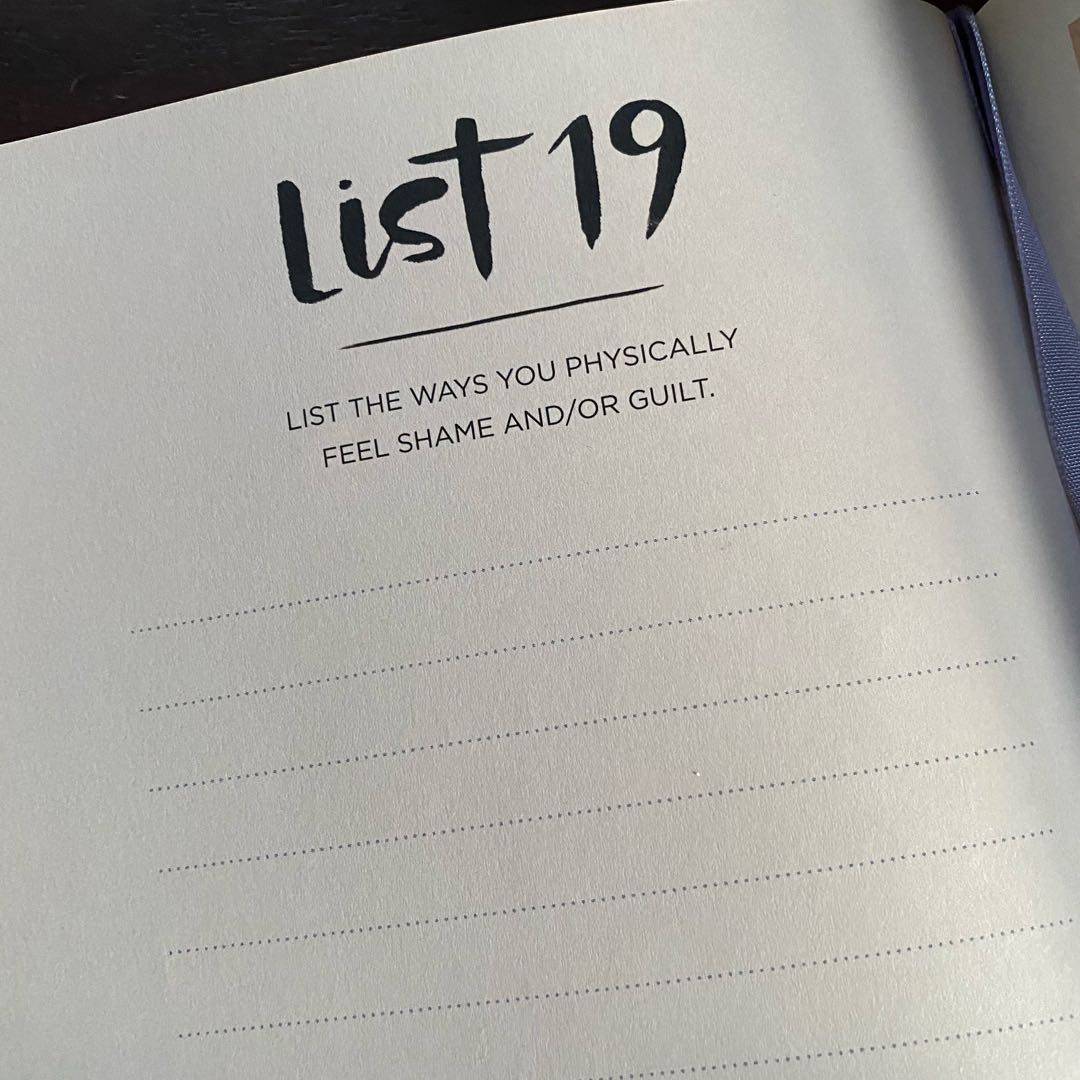 List 19
LIST THE WAYS YOU PHYSICALLY
FEEL SHAME AND/OR GUILT.